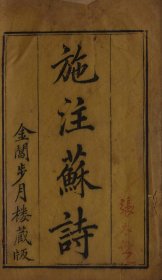 施注蘇詩
金閶步月樓藏版